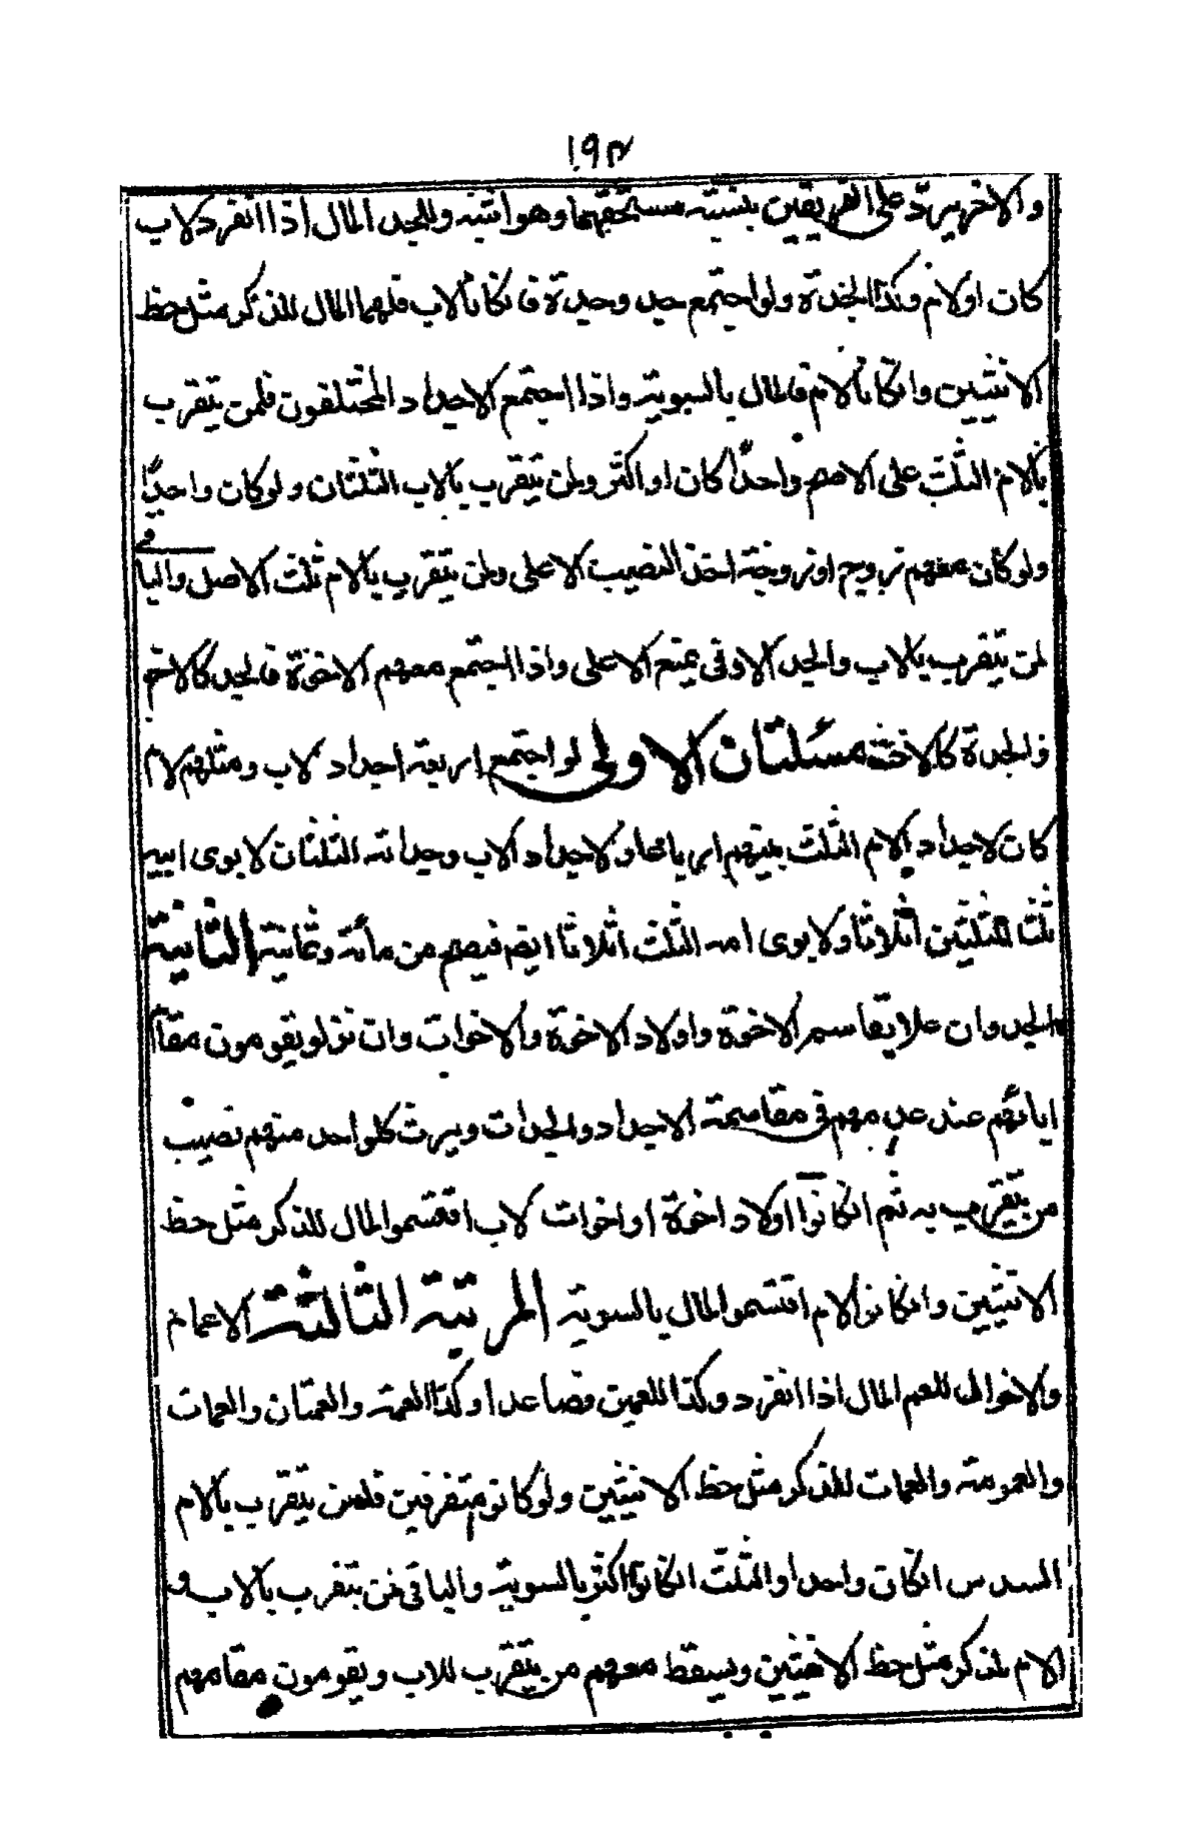 ١٩٣
والاخر يردّ على الفريقين بنسبته مستحقهما وهو اثبته وللجد المال اذا انفرد لاب
كان او لام وكذا الجدة ولو اجتمع جد وجدة فانكانا لاب فلهما المال للذكر مثل حظ
الانثيين وانكانا لام فالمال بالسوية واذا اجتمع الاجداد المختلفون فلمن يتقرب
بالام الثلث على الاصح واحدًا كان او اكثر ولمن يتقرب بالاب الثلثان ولو كان واحدًا
ولو كان معهم زوج او زوجة اخذ النصيب الاعلى ولمن يتقرب بالام ثلث الاصل والباقى
لمن يتقرب بالاب والجد الادنى يمنع الاعلى واذا اجتمع معهم الاخوة فالجد كالاخ
والجدة كالاخت مسئلتان الاولى لو اجتمع اربعة اجداد لاب ومثلهم لام
كان لاجداد الام الثلث بينهم ارباعا ولاجداد الاب وجداته الثلثان لابوى ابيه
ثلثا الثلثين اثلاثا ولابوى امه الثلث اثلاثا ايضا فيصح من مائة وثمانية الثانية
الجد وان علا يقاسم الاخوة واولاد الاخوة والاخوات وان نزلو يقومون مقام
ابائهم عند عدمهم فى مقاسمة الاجداد والجدات ويرث كلواحد منهم نصيب
من يتقرب به ثم انكانوا اولاد اخوة او اخوات لاب اقتسموا المال للذكر مثل حظ
الانثيين وانكانو لام اقتسموا المال بالسوية المرتبة الثالثة الاعمام
والاخوال للعم المال اذا انفرد وكذا للعمين فصاعدا وكذا العمة والعمتان والعمات
والعمومة والعمات للذكر مثل حظ الانثيين ولو كانو متفرقين فلمن يتقرب بالام
السدس انكان واحدا والثلث انكانوا اكثر بالسوية والباقى لمن يتقرب بالاب و
الام للذكر مثل حظ الانثيين ويسقط معهم من يتقرب للاب ويقومون مقامهم